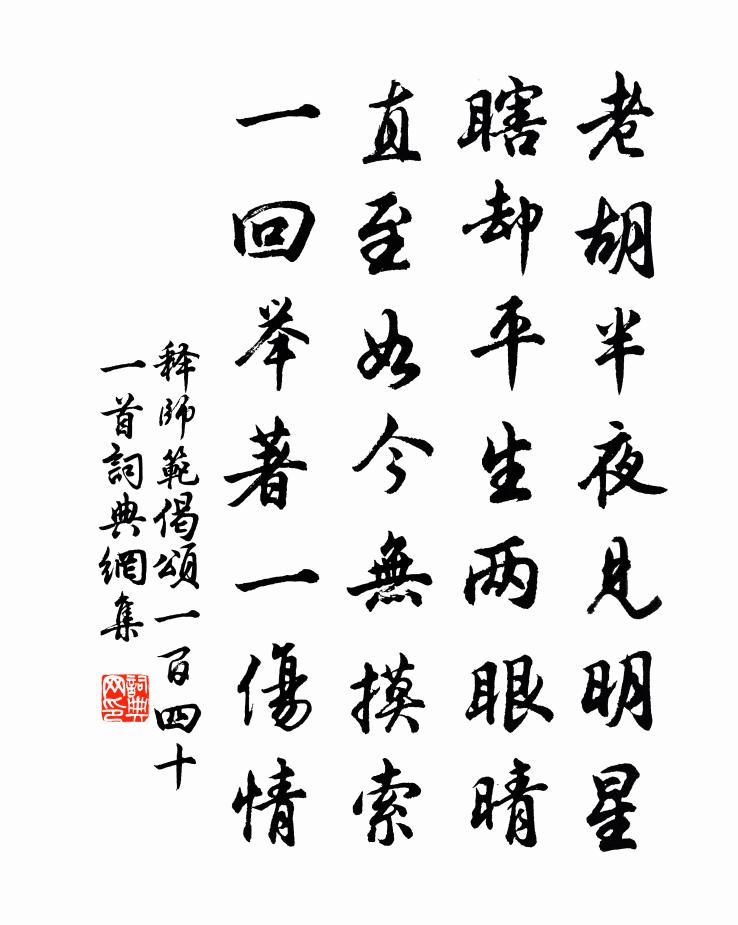 老胡半夜見明星
瞎却平生两眼晴
直至如今無摸索
一回举著一傷情
释師範偈頌一百四十
一首詞典網集
詞典
网印